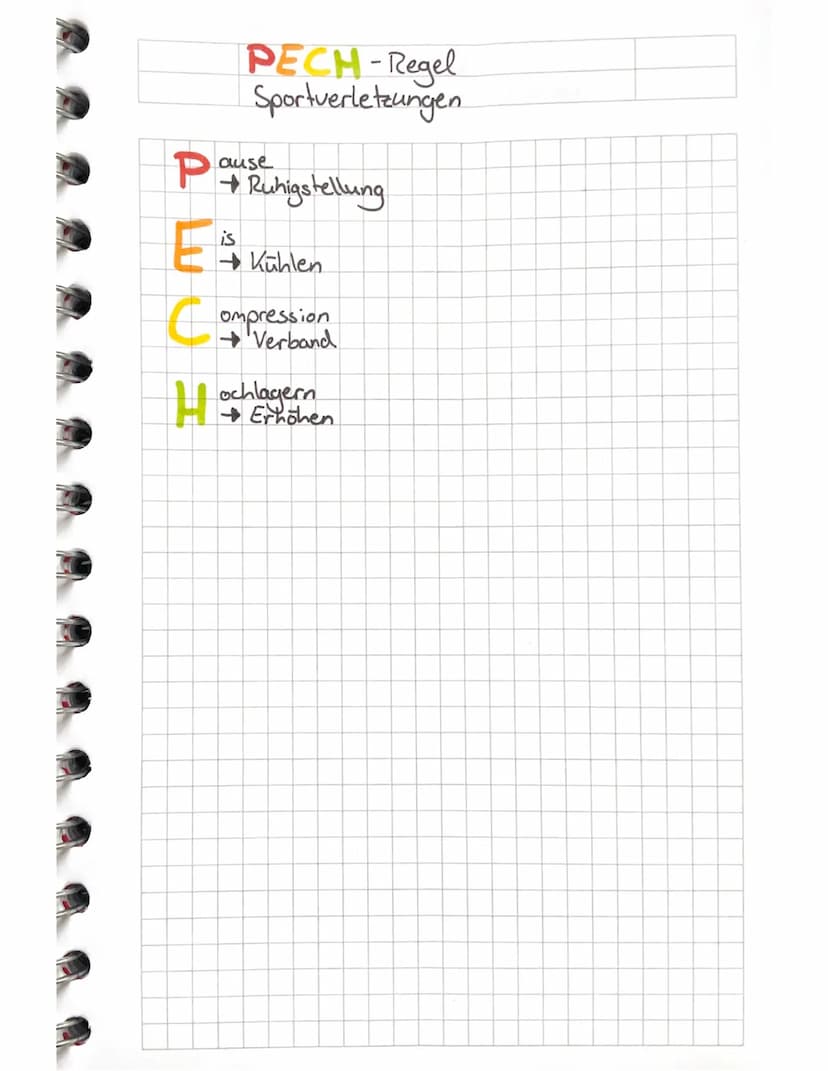 PECH - Regel
Sportverletzungen
Pause
→ Ruhigstellung
Eis
→ Kühlen
Compression
→ Verband
Hochlagern
→ Erhöhen